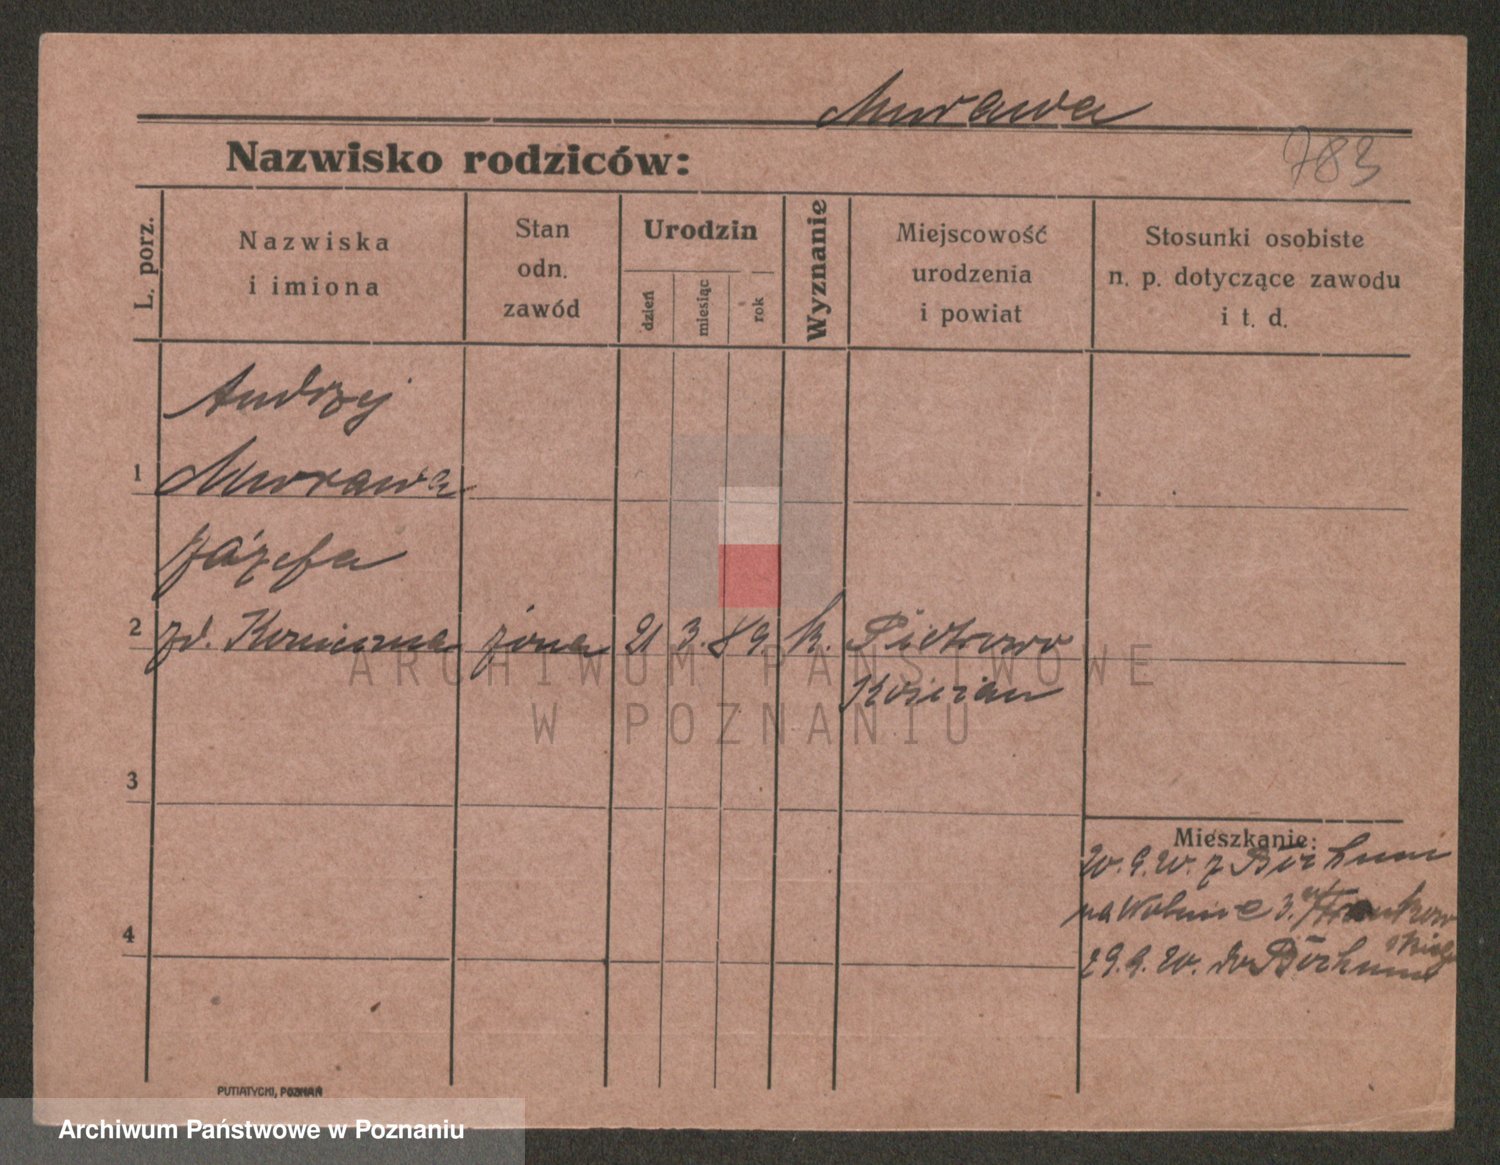 Murawa
Nazwisko rodziców:
783
L. porz.
Nazwiska
i imiona
Stan
odn.
zawód
Urodzin
dzień
miesiąc
rok
Wyznanie
Miejscowość
urodzenia
i powiat
Stosunki osobiste
n. p. dotyczące zawodu
i t. d.
Andrzej
1 Murawa
Józefa
2 zd. żona 21 3. 89. k. Piotrowo
Kościan
3
Mieszkanie:
20. 9. 20. z Bochum
na 3.
4
29. 9. 20. do Bochum
ARCHIWUM PAŃSTWOWE
W POZNANIU
PUTIATYCKI, POZNAŃ
Archiwum Państwowe w Poznaniu